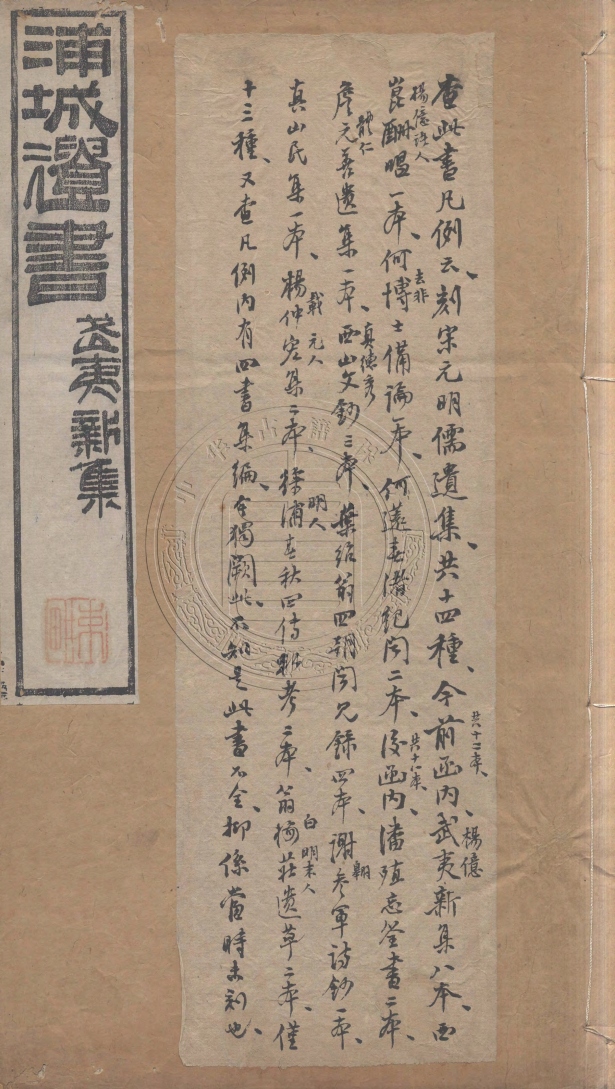 查此書凡例云、刻宋元明儒遺集、共十四種、今前函内、武夷新集八本、西
共十二本、
楊億
崑酬唱一本、何博士備論一本、何薳春渚紀聞二本、後函内、潘殖忘筌書二本、
楊億諸人
去非
共十八本、
詹元善遺集一本、西山文鈔三本、葉紹翁四朝聞見錄四本、謝參軍詩鈔一本、
體仁
真德秀
翱
真山民集一本、楊仲宏集二本、徐浦春秋四傳私考二本、翁梅莊遺草二本、僅
載 元人
明人
白 明末人
十三種、又查凡例内有四書集編、今獨闕此、不知是此書不全、抑係當時未刻也、
浦城遺書
武夷新集